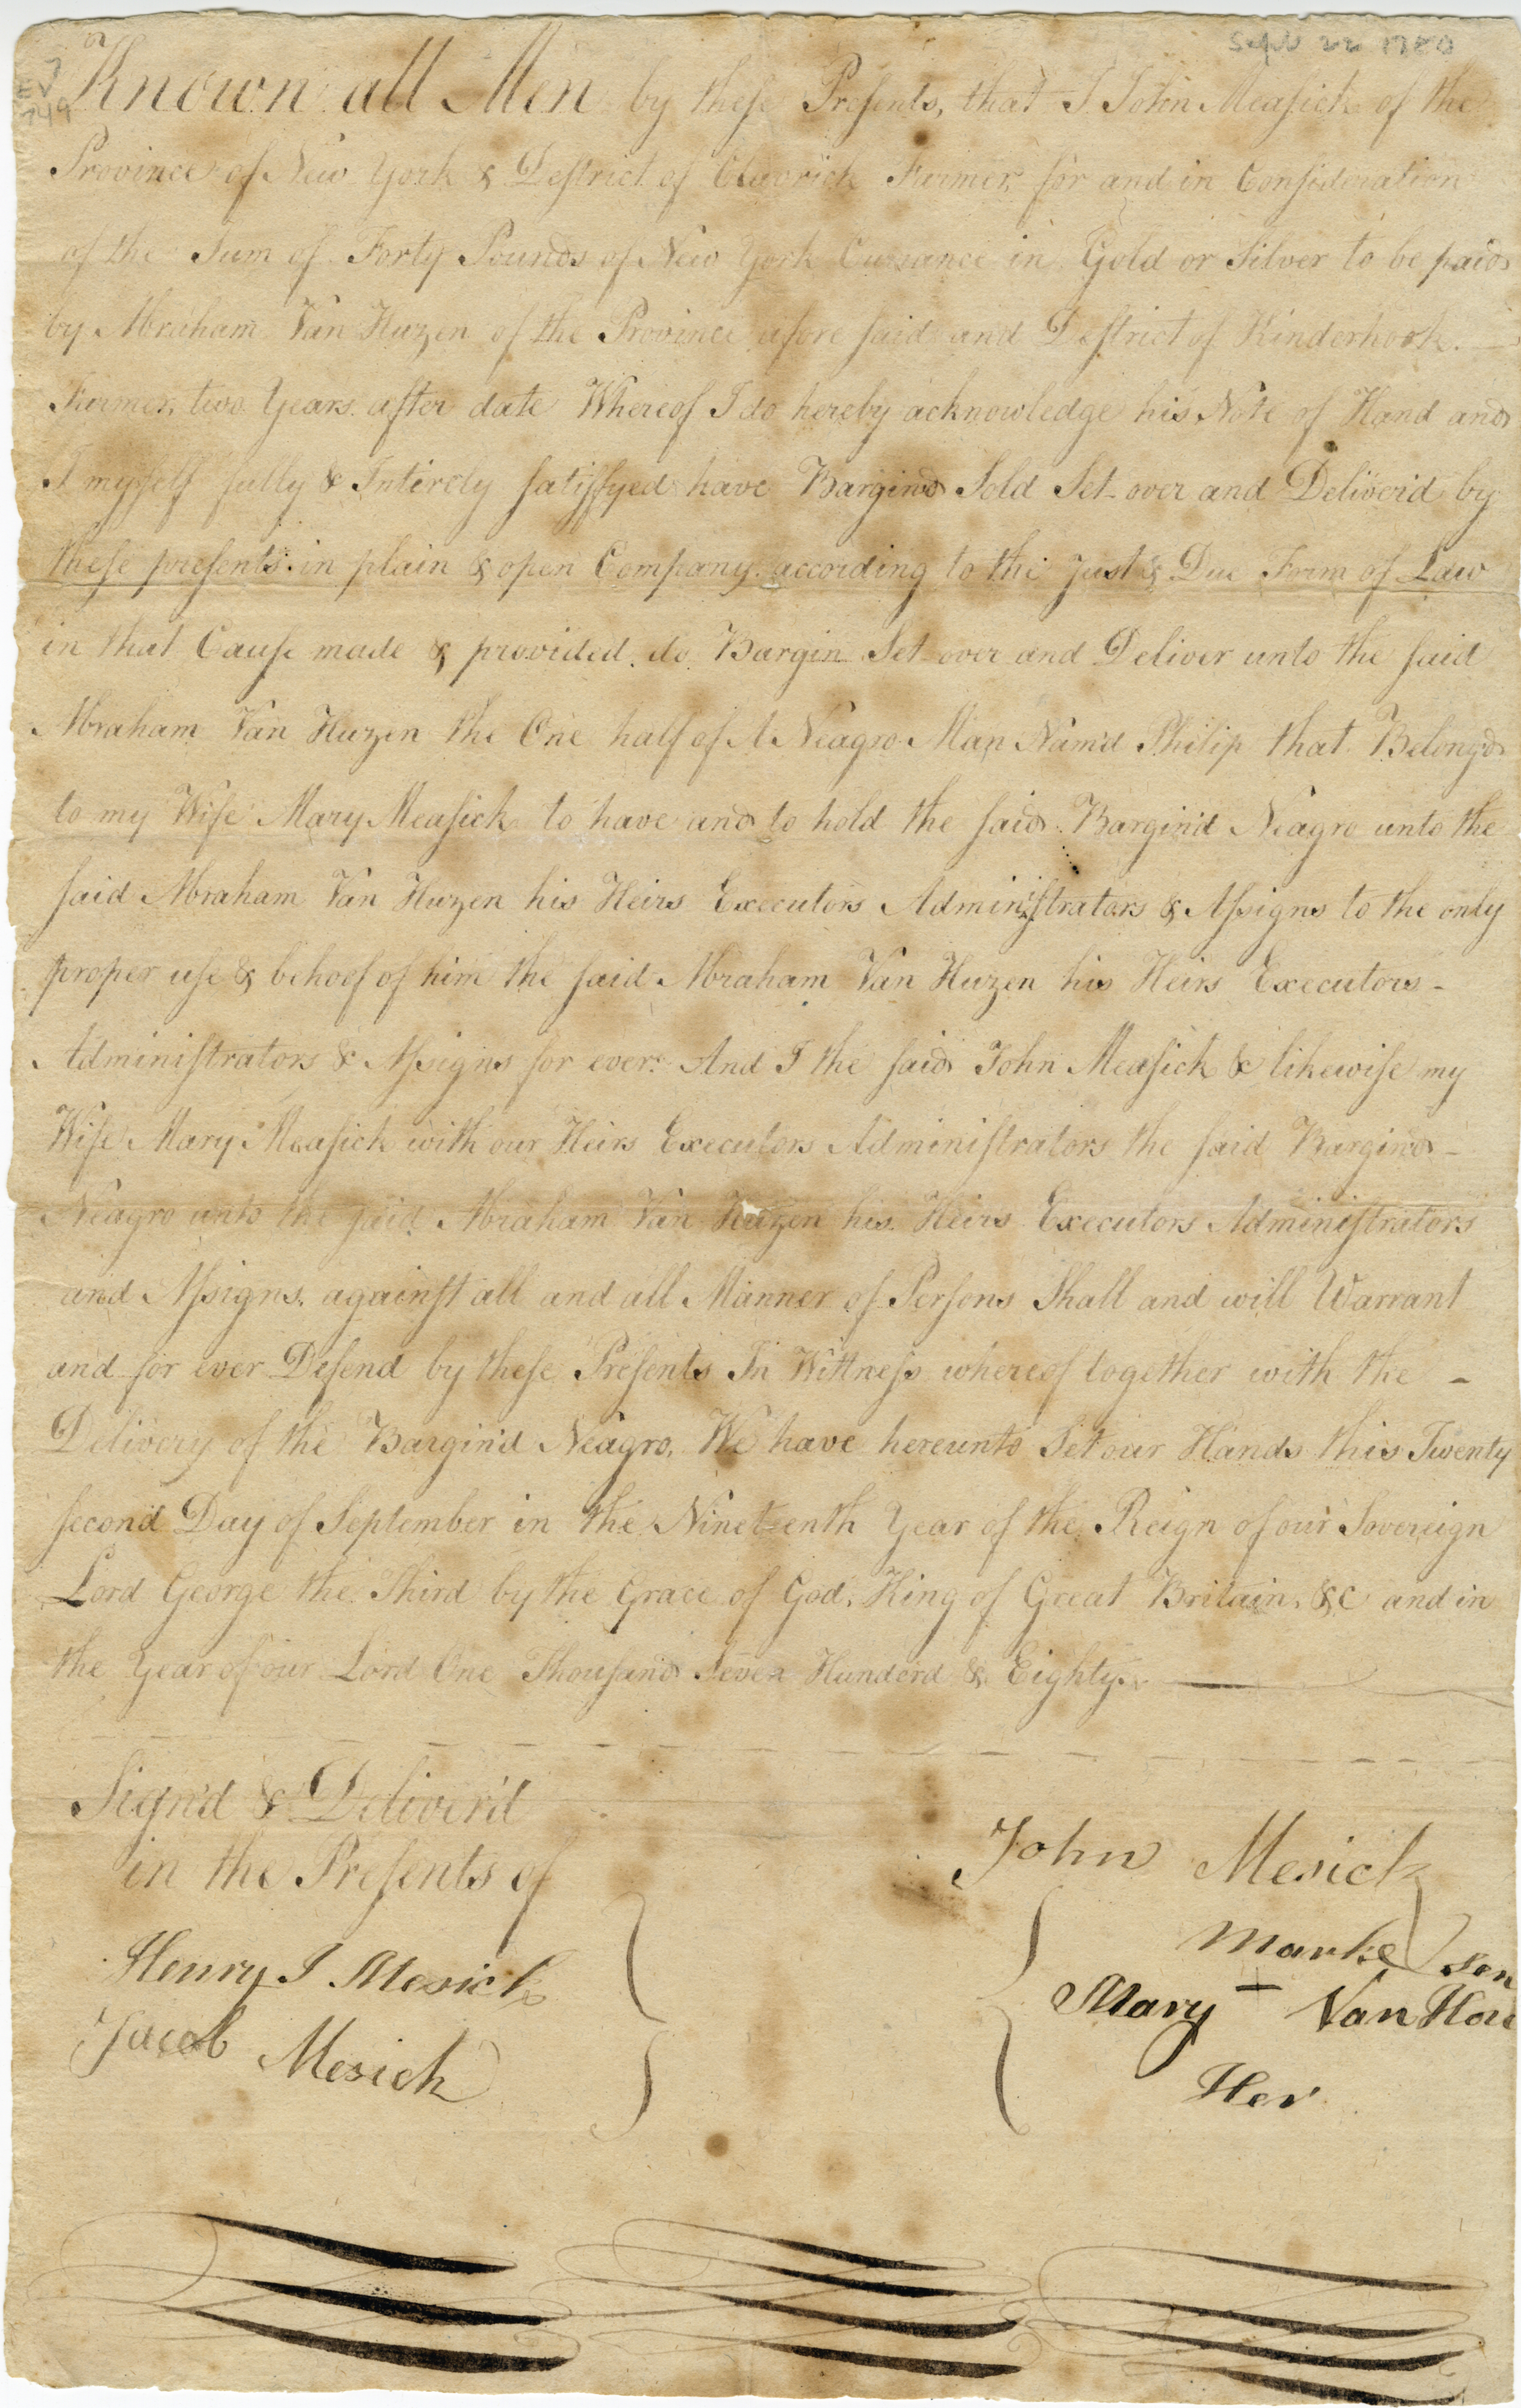 Sept 22 1780
EV
749
Known all Men by these Presents, that I John Measick of the
Province of New York & Destrict of Claverick Farmer, for and in Consideration
of the Sum of Forty Pounds of New York Currance in Gold or Silver to be paid
by Abraham Van Huzen of the Province afore said and Destrict of Kinderhook.
Farmer, two Years after date Whereof I do hereby acknowledge his Note of Hand and
I myself fully & Intirely satisfyed have Bargind Sold Set over and Deliver'd by
these presents in plain & open Company according to the Just & Due Form of Law
in that Cause made & provided. do Bargin Set over and Deliver unto the said
Abraham Van Huzen the One half of A Neagro Man Nam'd Philip that Belong'd
to my Wife Mary Measick to have and to hold the said Bargin'd Neagro unto the
said Abraham Van Huzen his Heirs Executors Administrators & Assigns to the only
proper use & behoof of him the said Abraham Van Huzen his Heirs Executors -
Administrators & Assigns for ever: And I the said John Measick & likewise my
Wife Mary Measick with our Heirs Executors Administrators the said Bargind -
Neagro unto the said Abraham Van Huzen his Heirs Executors Administrators
and Assigns, against all and all Manner of Persons Shall and will Warrant
and for ever Defend by these Presents In Wittness whereof together with the -
Delivery of the Bargin'd Neagro, We have hereunto Set our Hands this Twenty
second Day of September in the Nineteenth Year of the Reign of our Sovereign
Lord George the Third by the Grace of God, King of Great Britain, &c and in
the Year of our Lord One Thousand Seven Hunderd & Eighty.
Sign'd & Deliver'd
in the Presents of
Henry I Mesick
Jacob Mesick
John Mesick
marke
Mary - Van Hou
sen
Her